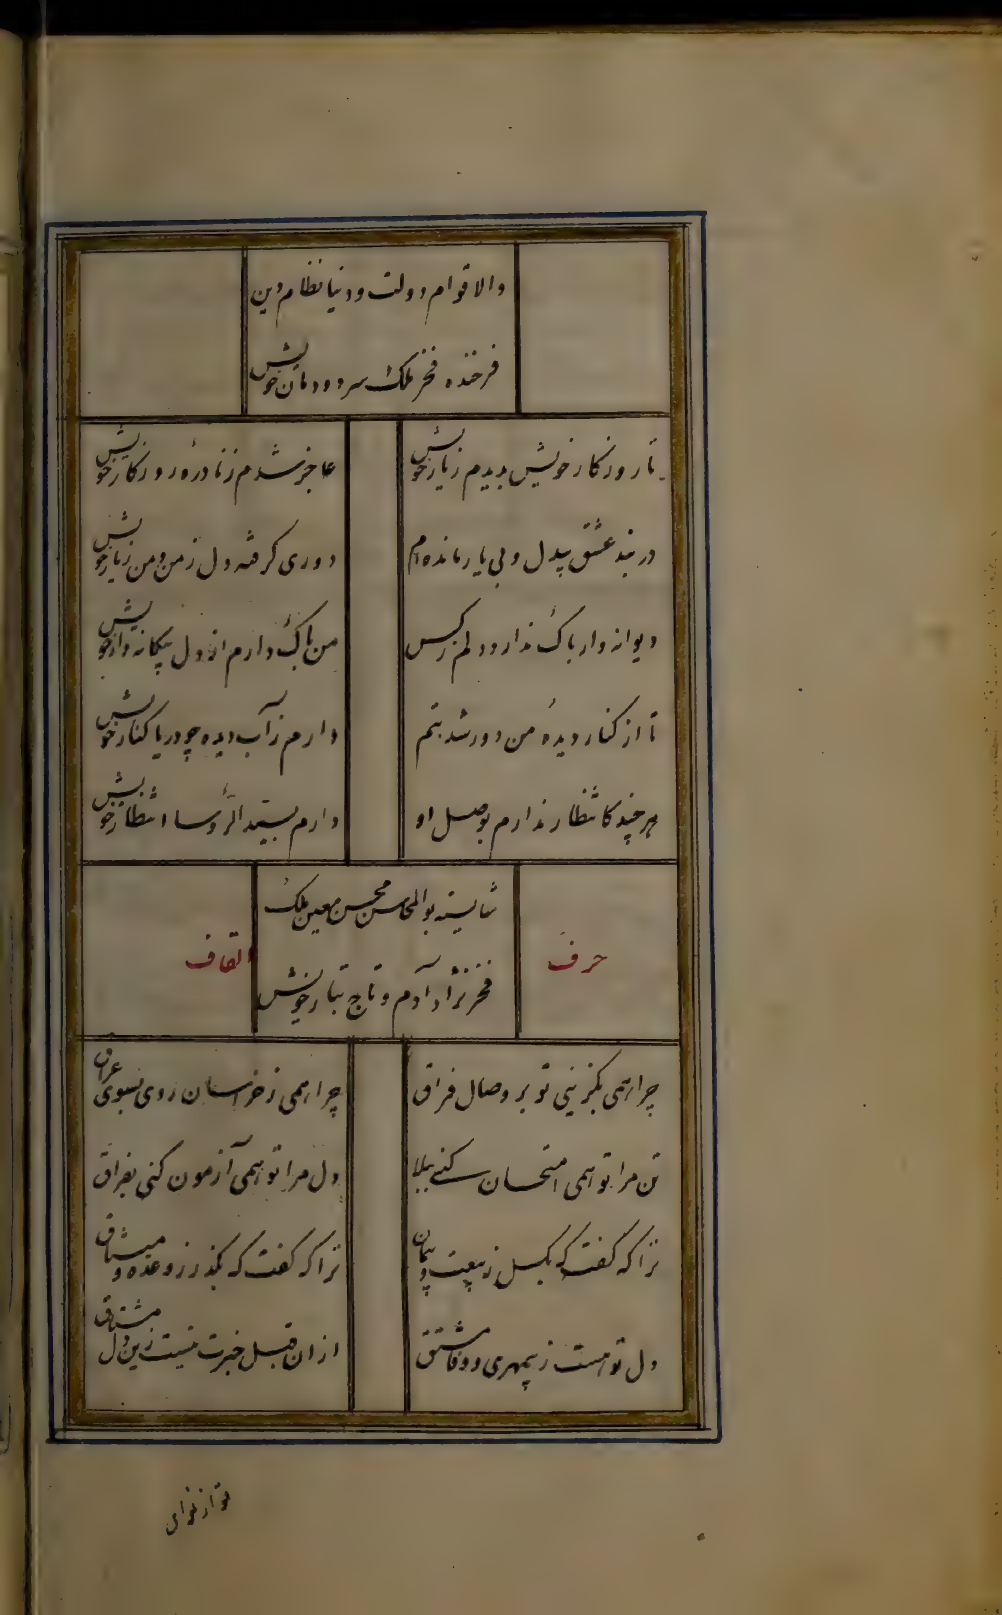 والا قوام دولت و دنیا نظام دین
فرخنده فخر ملک سر دودمان خویش
تا روزکار خویش بدیدم زیار خویش
عاجز شدم ز نادرهٔ روزکار خویش
در بند عشق بیدل و بی یار مانده‌ام
دوری کرفته دل ز من و من ز یار خویش
دیوانه وار باک ندارد دلم ز کس
من باک دارم از دل بیکانه وار خویش
تا از کنار دیدهٔ من دور شد بتم
دارم ز آب دیده چو دریا کنار خویش
هر چند کانتظار ندارم بوصل او
دارم بسید الرؤسا انتظار خویش
شایسته بوالمحاسن محسن معین ملک
حرف
القاف
فخر نژاد آدم و تاج تبار خویش
چرا همی بکزینی تو بر وصال فراق
چرا همی ز خراسان روی بسوی عراق
تن مرا تو همی امتحان کنی ببلا
دل مرا تو همی آزمون کنی بفراق
ترا که کفت که بکسل ز بیعت و پیمان
ترا که کفت که بکذر ز وعده و میثاق
دل تو هست ز بیمهری و وفا مشتق
از ان قبل خبرت نیست زین دل مشتاق
تو از نوای